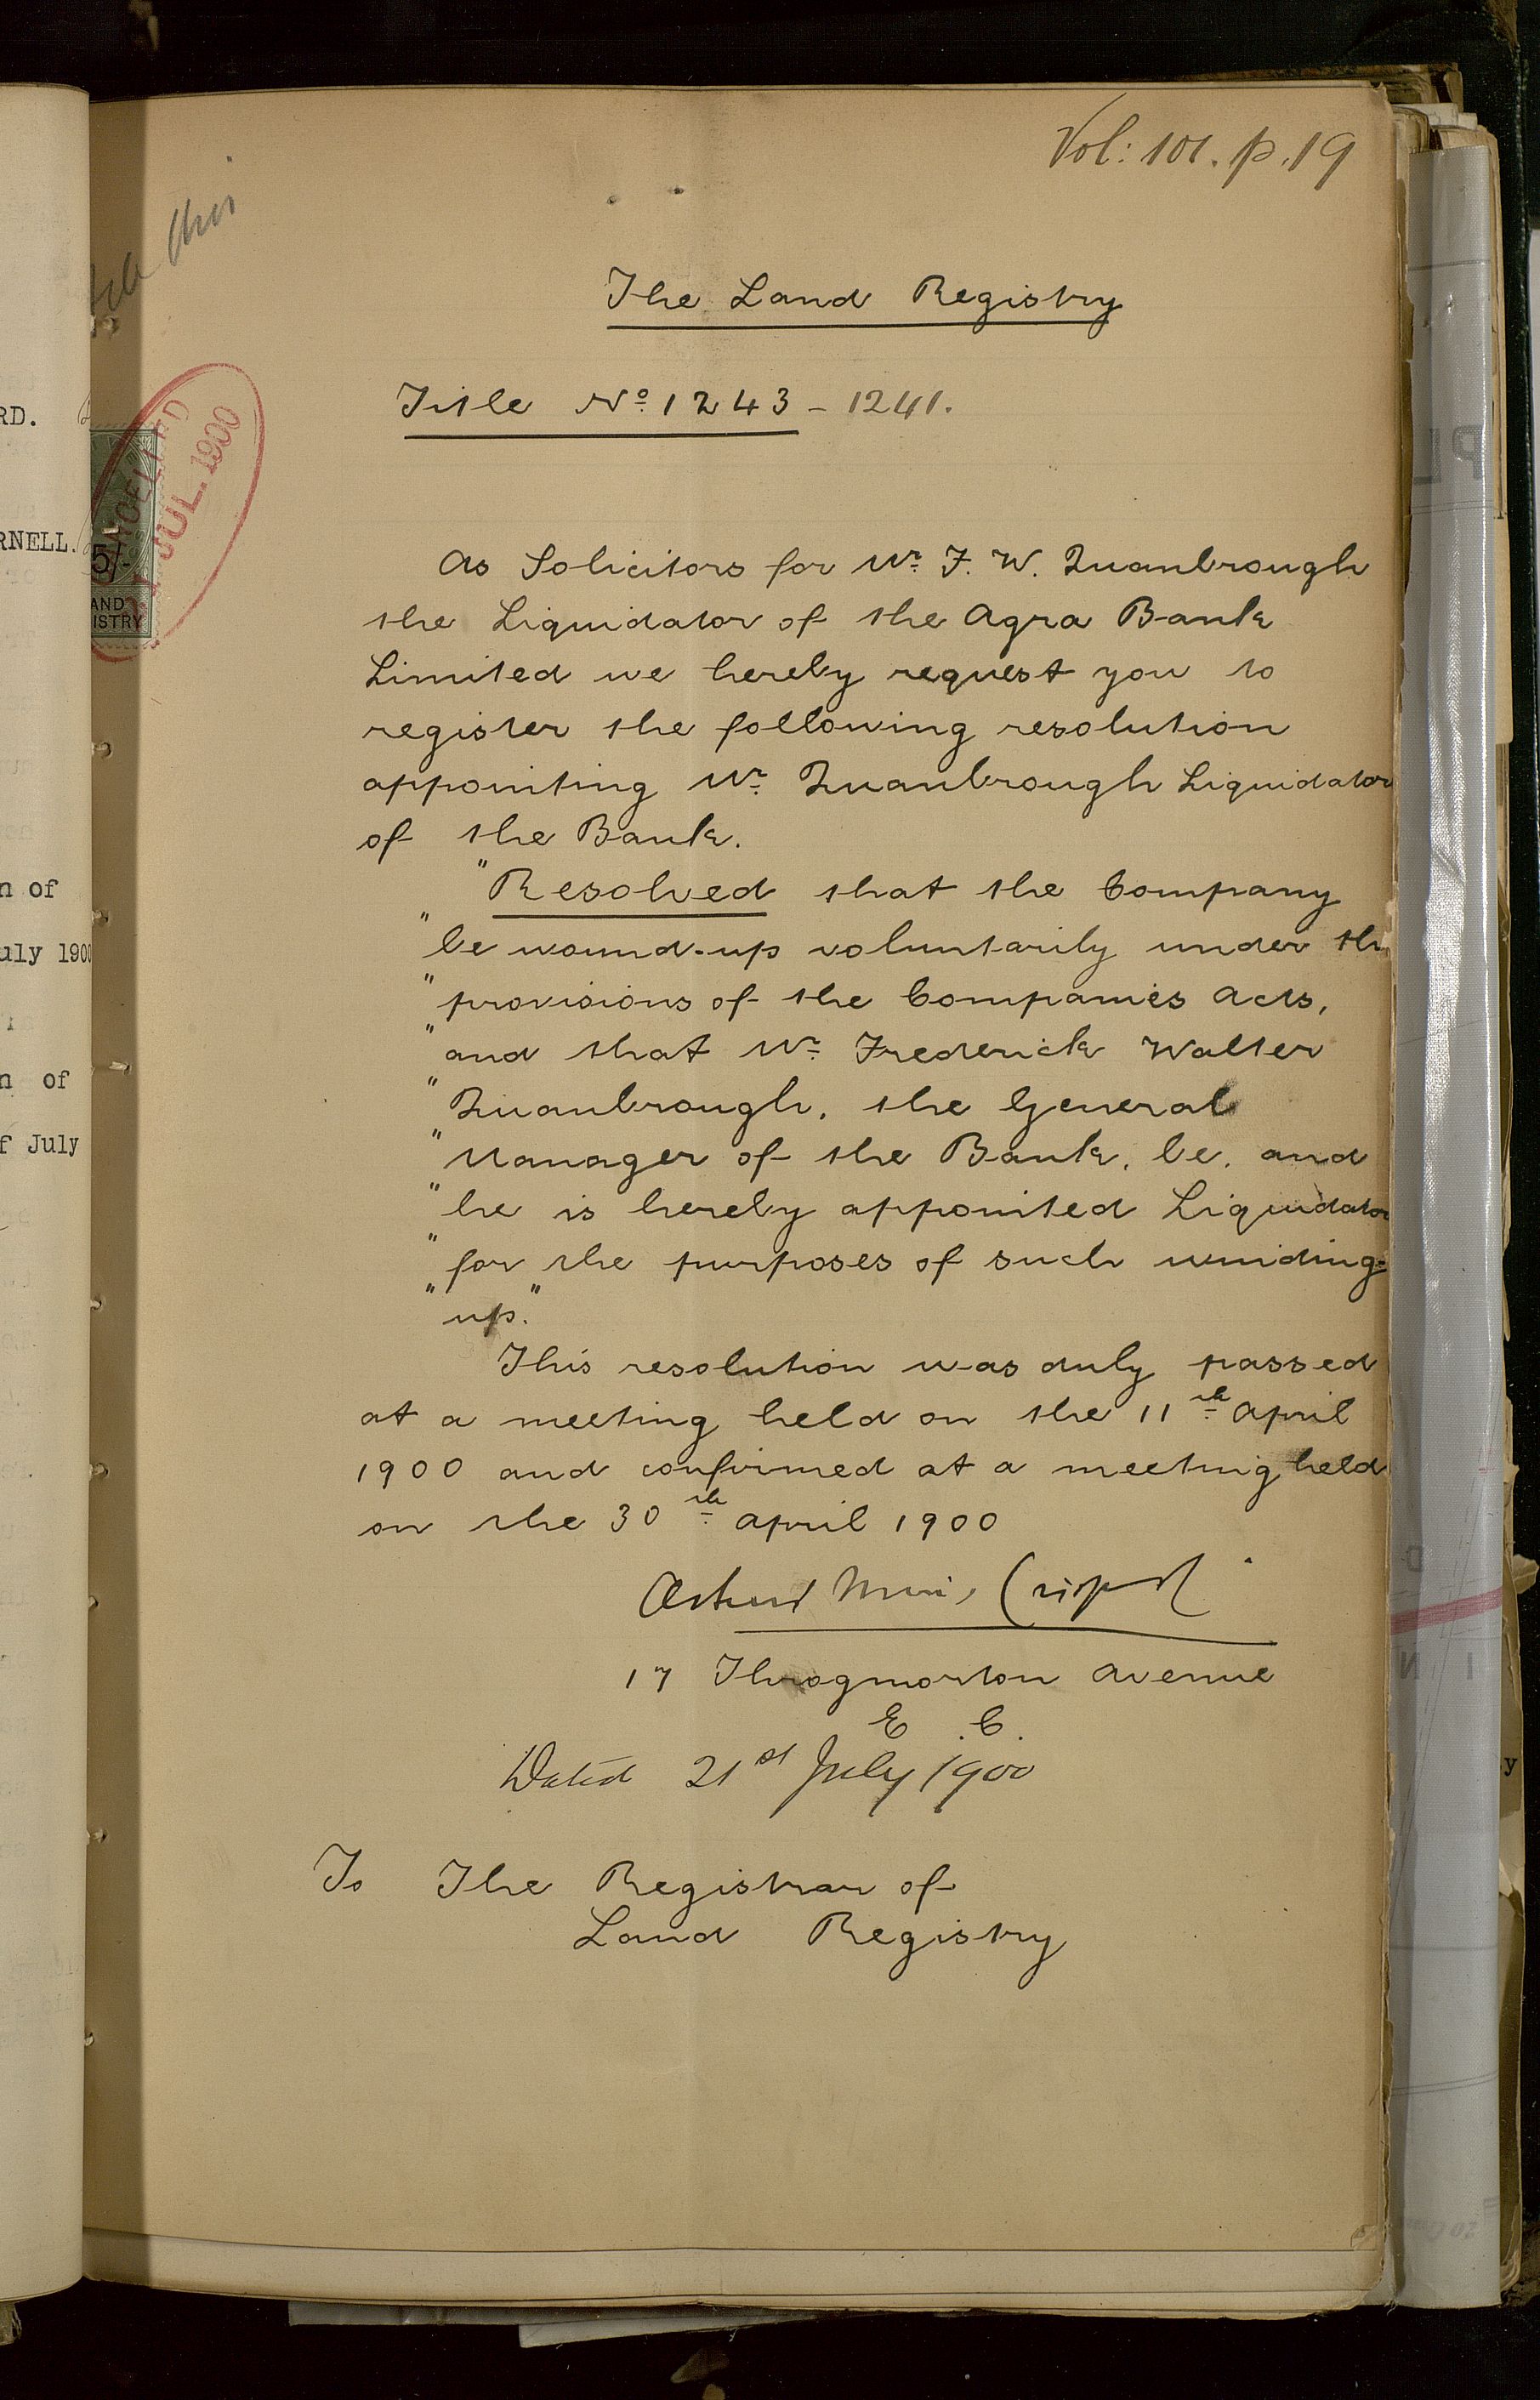 Vol: 101. p. 19
The Land Registry
Title No. 1243 - 1241.
As Solicitors for Mr. F. W. Quanbrough
the Liquidator of the Agra Bank
Limited we hereby request you to
register the following resolution
appointing Mr. Quanbrough Liquidator
of the Bank.
"Resolved that the Company
"be wound-up voluntarily under the
"provisions of the Companies Acts,
"and that Mr. Frederick Walter
"Quanbrough, the General
"Manager of the Bank, be, and
"he is hereby appointed Liquidator
"for the purposes of such winding-
"up."
This resolution was duly passed
at a meeting held on the 11th April
1900 and confirmed at a meeting held
on the 30th April 1900
17 Throgmorton Avenue
E.C.
Dated 21st July 1900
To The Registrar of
Land Registry
JUL. 1900
5/-
RD.
RNELL.
n of
uly 190
n of
f July